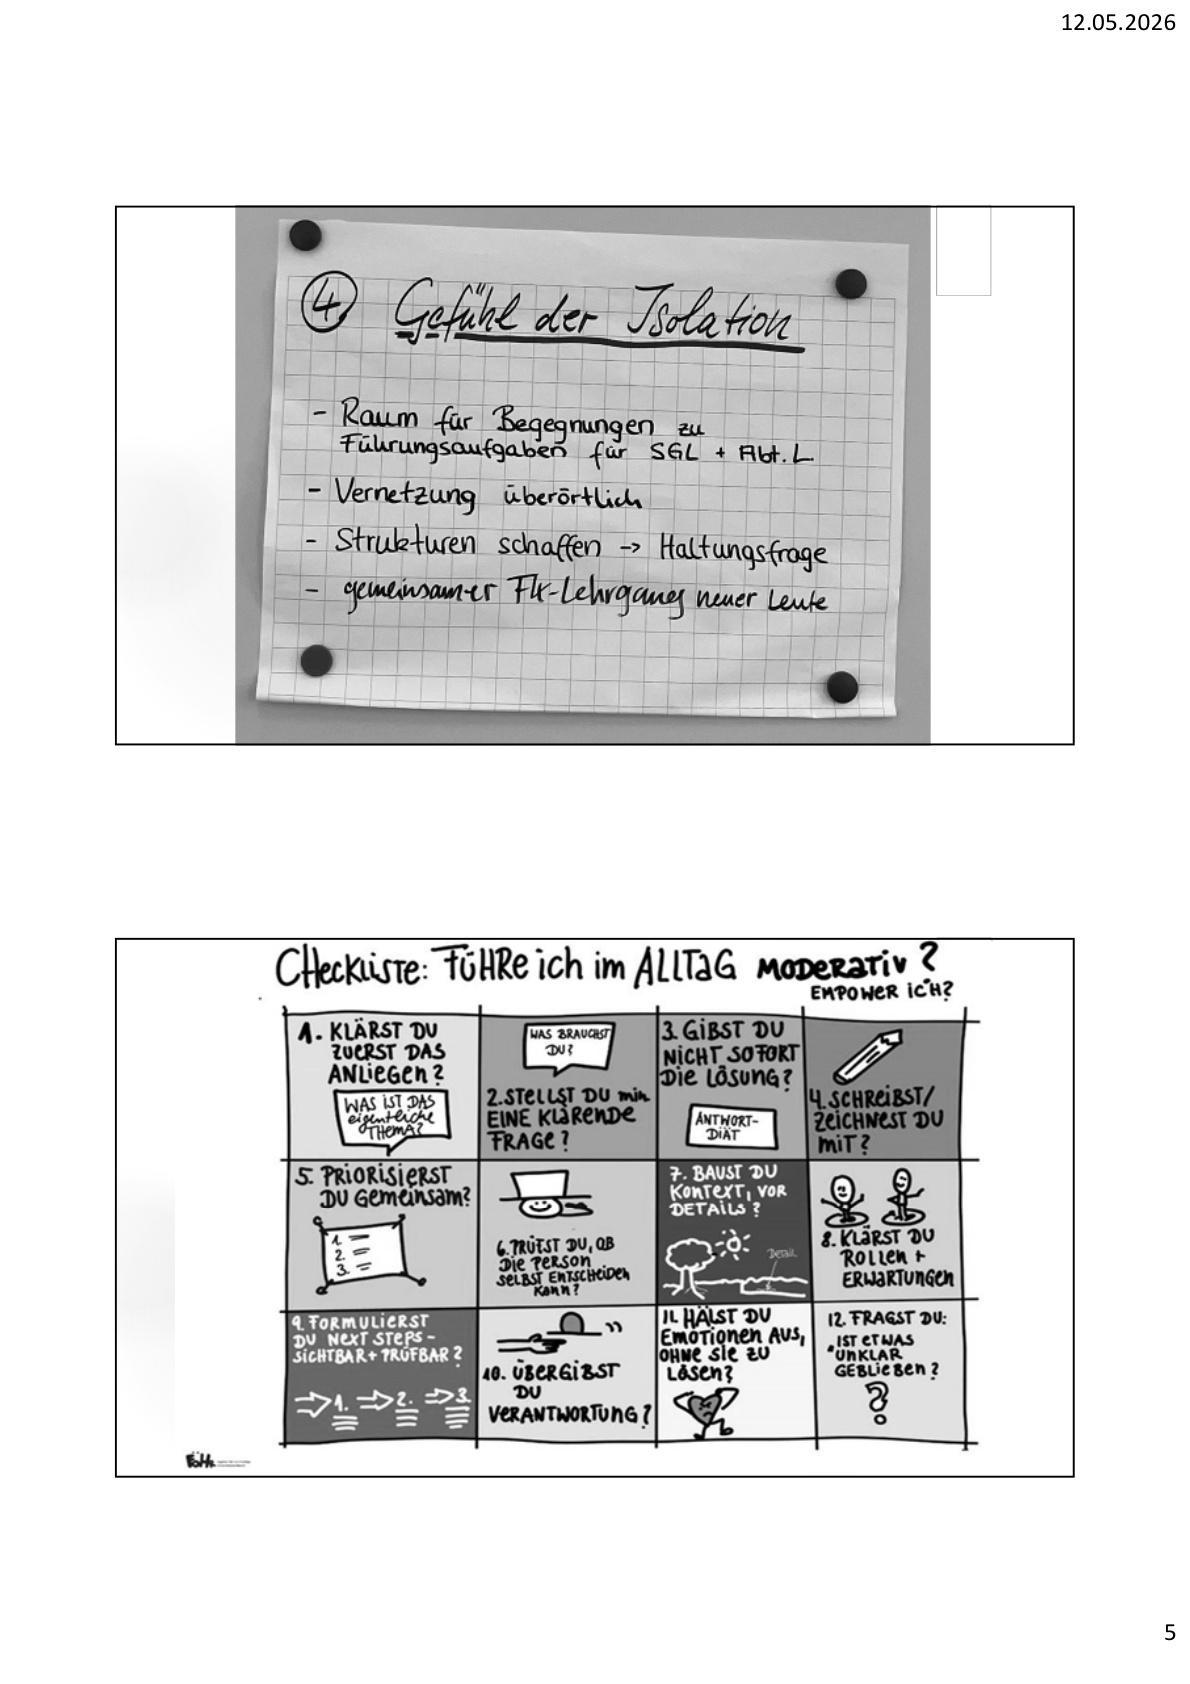 12.05.2026
4 Gefühl der Isolation
- Raum für Begegnungen zu
Führungsaufgaben für SGL + Abt.L.
- Vernetzung überörtlich
- Strukturen schaffen -> Haltungsfrage
- gemeinsamer FK-Lehrgang neuer Leute
CHECKLISTE: FÜHRE ich im ALLTAG MODERATIV?
EMPOWER ICH?
1. KLÄRST DU
ZUERST DAS
ANLIEGEN?
WAS IST DAS
eigentliche
THEMA?
WAS BRAUCHST
DU?
2. STELLST DU min
EINE KLÄRENDE
FRAGE?
3. GIBST DU
NICHT SOFORT
DIE LÖSUNG?
ANTWORT-
DIÄT
4. SCHREIBST/
ZEICHNEST DU
MIT?
5. PRIORISIERST
DU GEMEINSAM?
1.
2.
3.
6. PRÜFST DU, OB
DIE PERSON
SELBST ENTSCHEIDEN
KANN?
7. BAUST DU
KONTEXT, VOR
DETAILS?
Detail
8. KLÄRST DU
ROLLEN +
ERWARTUNGEN
9. FORMULIERST
DU NEXT STEPS -
SICHTBAR + PRÜFBAR?
1. 2. 3.
10. ÜBERGIBST
DU
VERANTWORTUNG?
11. HÄLST DU
EMOTIONEN AUS,
OHNE SIE ZU
LÖSEN?
12. FRAGST DU:
IST ETWAS
UNKLAR
GEBLIEBEN?
?
5